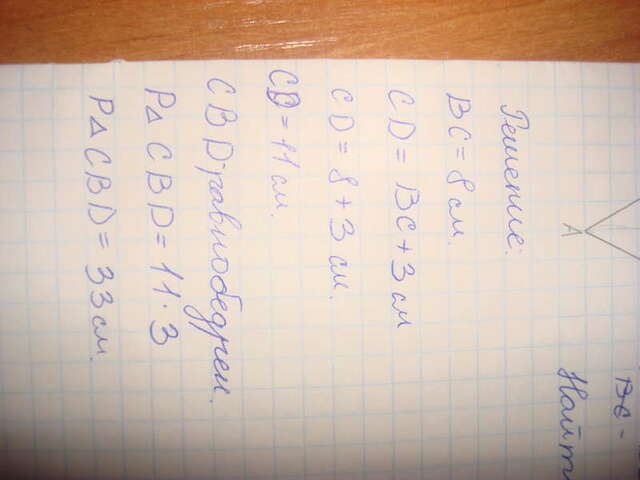 А
Найт
Решение:
ВС = 8 см.
CD = ВС + 3 см
CD = 8 + 3 см.
CD = 11 см.
CBD-равнобедрен.
P△CBD = 11·3
P△CBD = 33 см.